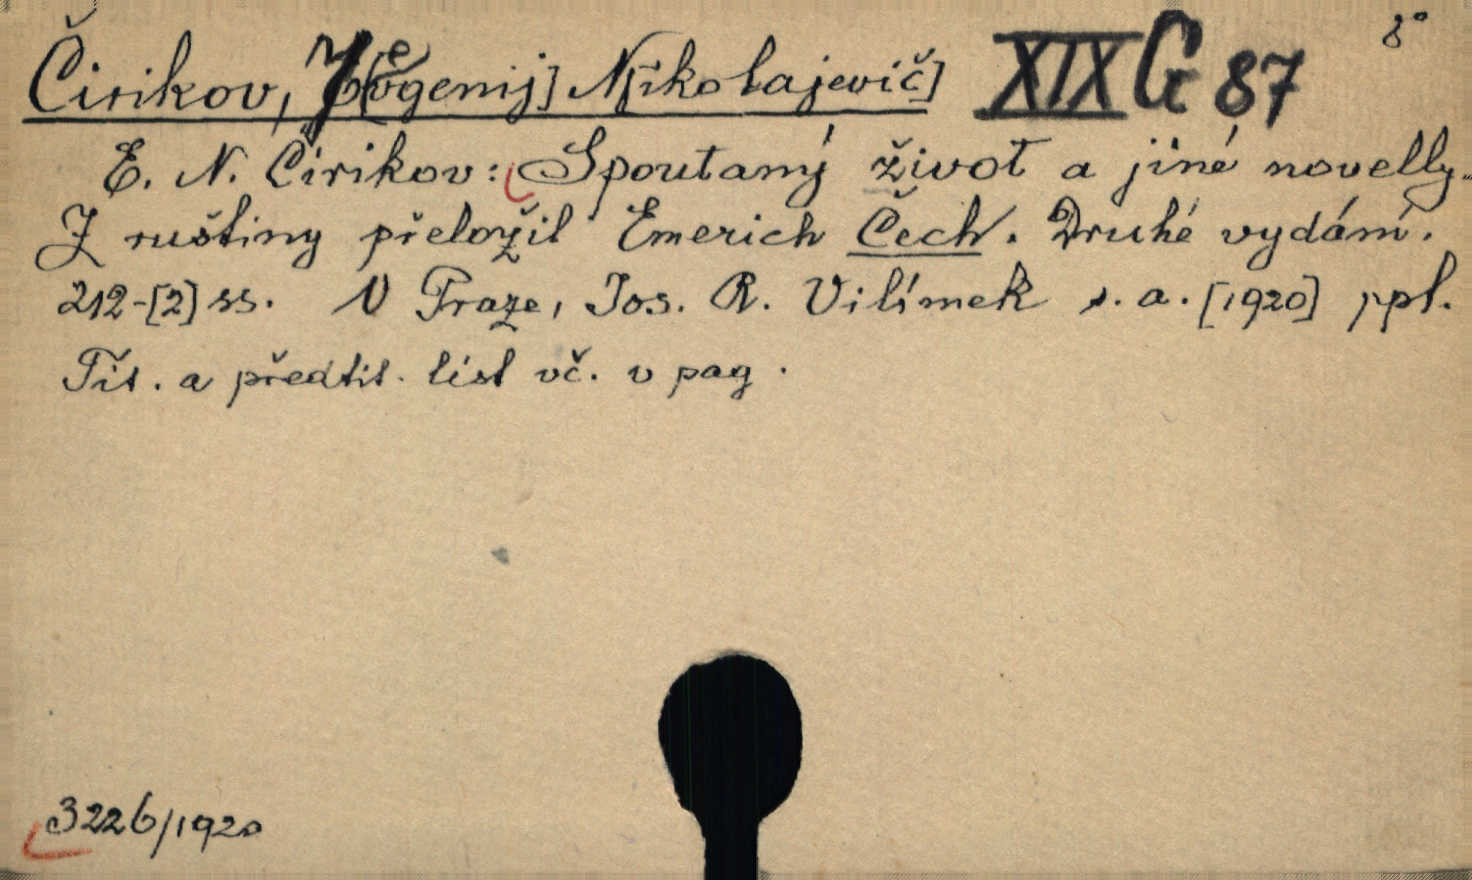 Čirikov, Je[vgenij] N[ikolajevič] XIX G 87 8°
E. N. Čirikov: Spoutaný život a jiné novelly.
Z ruštiny přeložil Emerich Čech. Druhé vydání.
212-[2] ss. V Praze, Jos. R. Vilímek s. a. [1920] ppl.
Tit. a předtit. list vč. v pag.
3226/1920